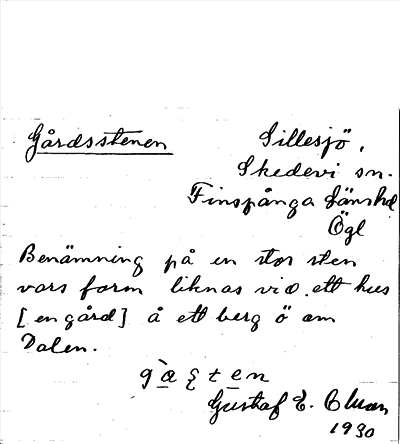 Gårdsstenen
Sillesjö,
Skedevi sn.
Finspånga länshd
Ögl
Benämning på en stor sten
vars form liknas vid ett hus
[en gård] å ett berg ö om
Dalen.
Gustaf E.
1930